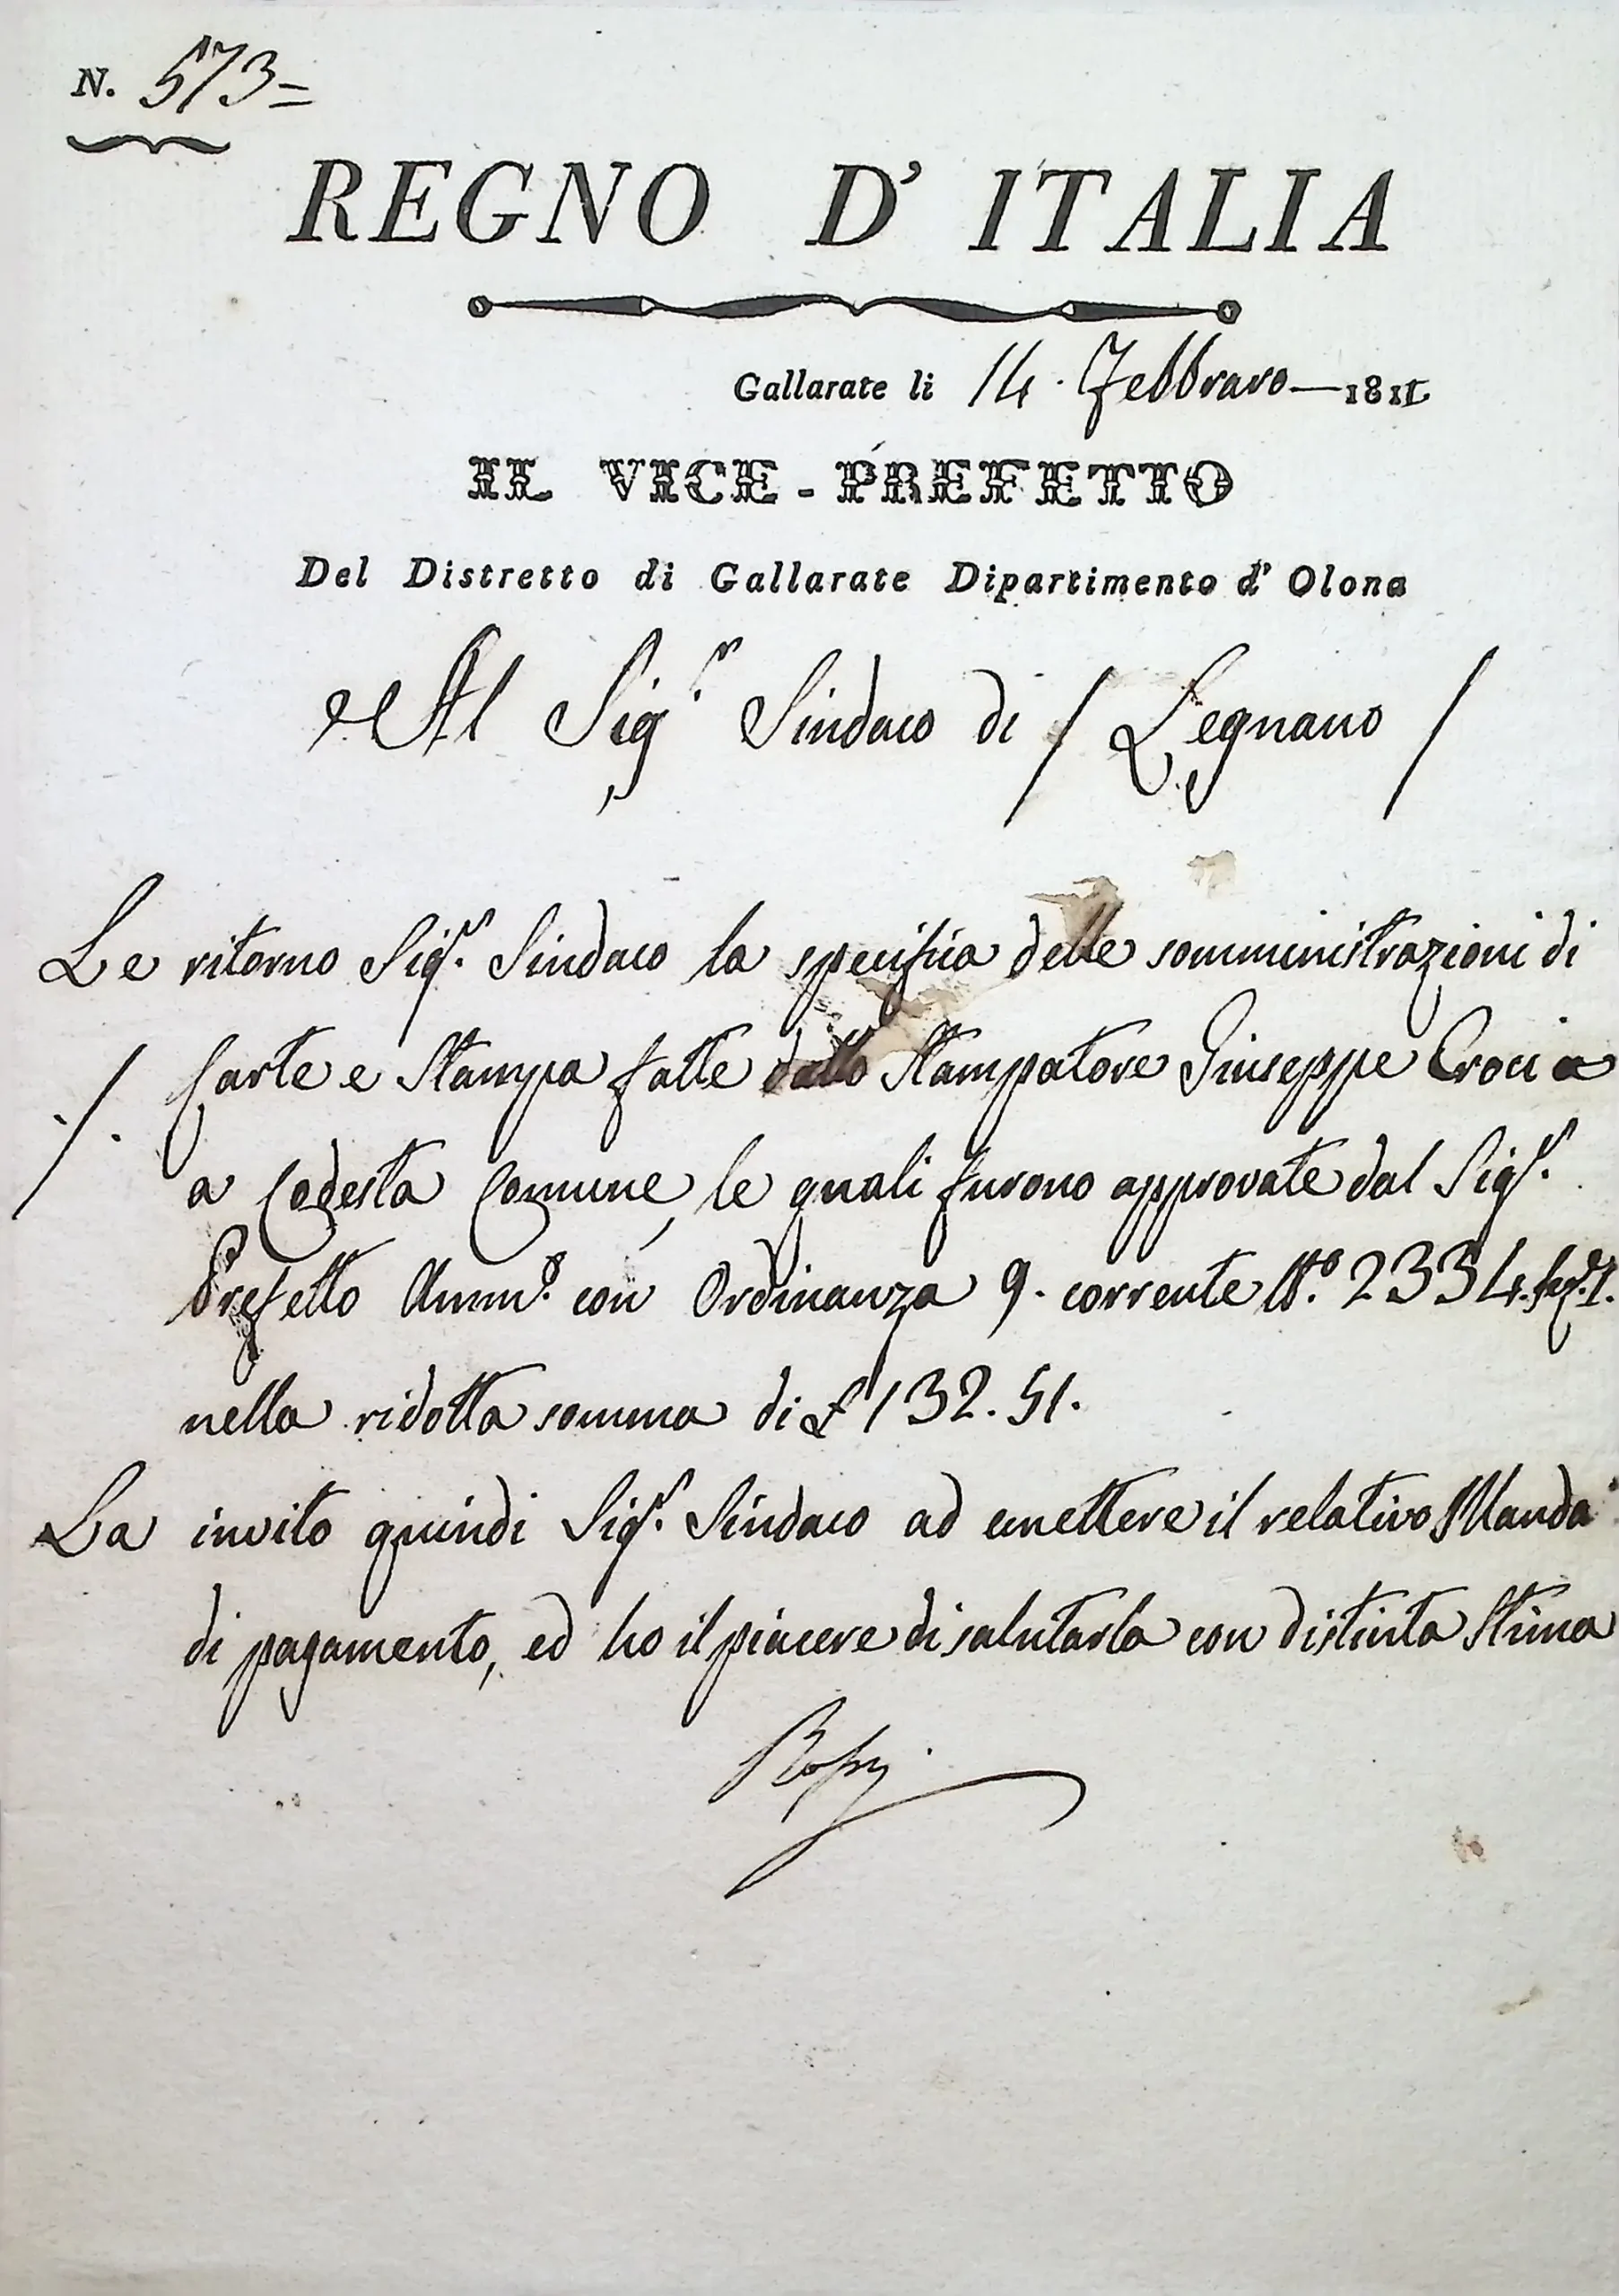 N. 573=
REGNO D' ITALIA
Gallarate li 14. Febbraro — 1811
IL VICE-PREFETTO
Del Distretto di Gallarate Dipartimento d' Olona
Al Sig.r Sindaco di / Legnano /
Le ritorno Sig.r Sindaco la specifica delle somministrazioni di
./. Carte e Stampa fatte dallo Stampatore Giuseppe Croci a
a Codesta Comune, le quali furono approvate dal Sig.r
Prefetto Amm.e con Ordinanza 9. corrente N.o 2334. Sez. I.
nella ridotta somma di £ 132. 51.
La invito quindi Sig.r Sindaco ad emettere il relativo Manda
di pagamento, ed ho il piacere di salutarla con distinta Stima